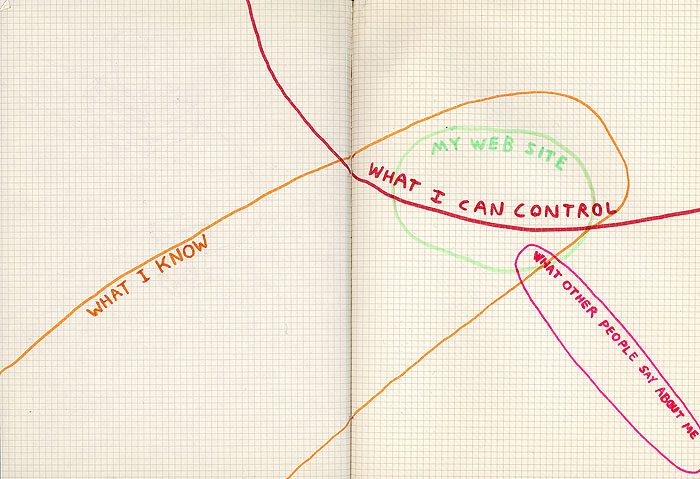 MY WEB SITE
WHAT I CAN CONTROL
WHAT I KNOW
WHAT OTHER PEOPLE SAY ABOUT ME